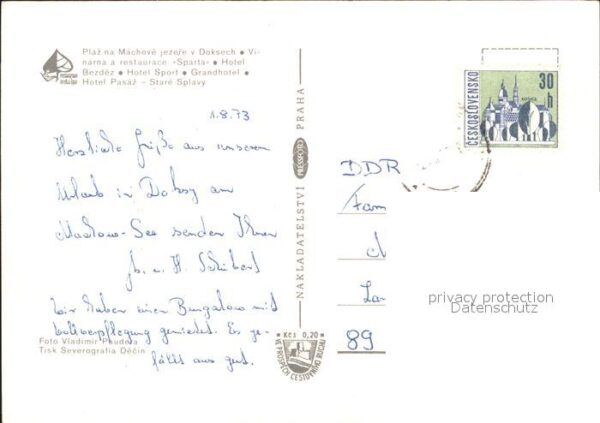 Pláž na Máchově jezeře v Doksech ● Vi-
nárna a restaurace «Sparta» ● Hotel
Bezděz ● Hotel Sport ● Grandhotel ●
Hotel Pasáž – Staré Splavy
1.8.73
Herzliche Grüße aus unserem
Urlaub in Doksy am
Machow-See senden Ihnen
H. Schubert
Wir haben einen Bungalow mit
Vollverpflegung gemietet. Es ge-
fällt uns gut.
Foto Vladimír
Tisk Severografia Děčín
NAKLADATELSTVÍ PRESSFOTO PRAHA
Kčs 0,20
VE PROSPĚCH CESTOVNÍHO RUCHU
ČESKOSLOVENSKO
30 h
DDR
Fam
La
89
privacy protection
Datenschutz